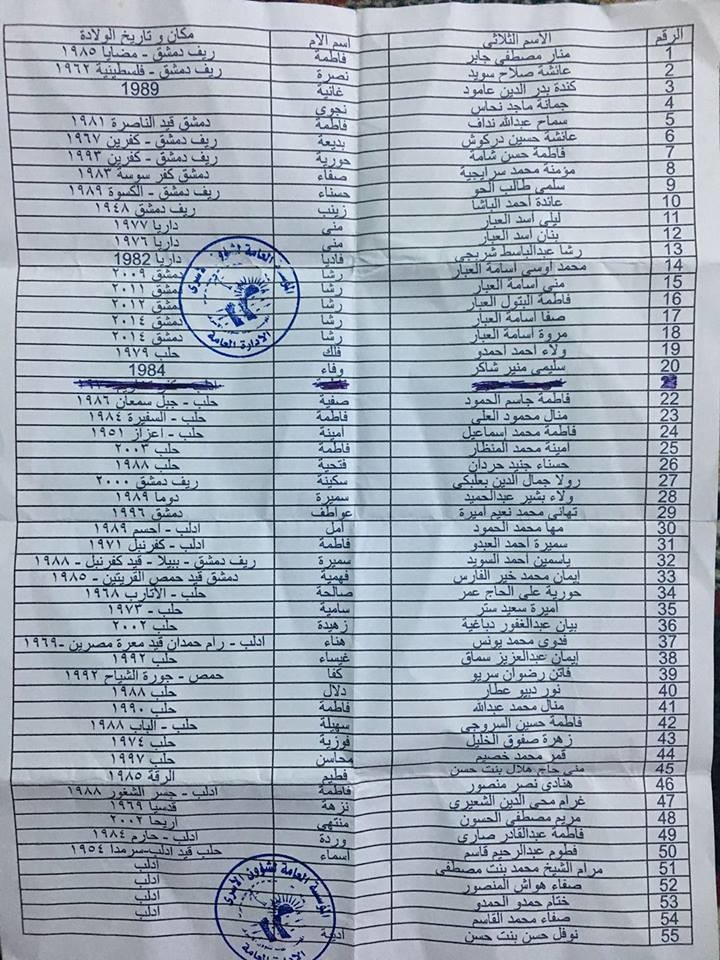 الرقم الاسم الثلاثي اسم الام مكان و تاريخ الولادة
1 منار مصطفى جابر فاطمة ريف دمشق - مضايا ١٩٨٥
2 عائشة صلاح سويد نصرة ريف دمشق - فلسطينية ١٩٦٢
3 كندة بدر الدين عامود غانية 1989
4 جمانة ماجد نحاس نجوى
5 سماح عبدالله نداف فاطمة دمشق قيد الناصرة ١٩٨١
6 عائشة حسين دركوش بديعة ريف دمشق - كفرين ١٩٦٧
7 فاطمة حسن شامة حورية ريف دمشق - كفرين ١٩٩٣
8 مؤمنة محمد سرايجية صفاء دمشق كفر سوسة ١٩٨٣
9 سلمى طالب الحو حسناء ريف دمشق - الكسوة ١٩٨٩
10 عائدة احمد الباشا زينب ريف دمشق ١٩٤٨
11 ليلى اسد العبار منى داريا ١٩٧٧
12 بنان اسد العبار منى داريا ١٩٧٦
13 رشا عبدالباسط شربجي فاديا داريا 1982
14 محمد اوسي اسامة العبار رشا دمشق ٢٠٠٩
15 منى اسامة العبار رشا دمشق ٢٠١١
16 فاطمة البتول العبار رشا دمشق ٢٠١٢
17 صفا اسامة العبار رشا دمشق ٢٠١٤
18 مروة اسامة العبار رشا دمشق ٢٠١٤
19 ولاء احمد احمدو فلك حلب ١٩٧٩
20 سليمى منير شاكر وفاء 1984
22 فاطمة جاسم الحمود صفية حلب - جبل سمعان ١٩٨٦
23 منال محمود العلي فاطمة حلب - السفيرة ١٩٨٤
24 فاطمة محمد إسماعيل امينة حلب - اعزاز ١٩٥١
25 امينة محمد المنظار فاطمة حلب ٢٠٠٣
26 حسناء جنيد حردان فتحية حلب ١٩٨٨
27 رولا جمال الدين بعلبكي سكينة ريف دمشق ٢٠٠٠
28 ولاء بشير عبدالحميد سميرة دوما ١٩٨٩
29 تهاني محمد نعيم اميرة عواطف دمشق ١٩٩٦
30 مها محمد الحمود أمل ادلب - احسم ١٩٨٩
31 سميرة أحمد العبدو فاطمة ادلب - كفرنبل ١٩٧١
32 ياسمين احمد السويد سميرة ريف دمشق - ببيلا - قيد كفرنبل - ١٩٨٨
33 إيمان محمد خير الفارس فهمية دمشق قيد حمص القريتين - ١٩٨٥
34 حورية علي الحاج عمر صالحة حلب - الأتارب ١٩٦٨
35 أميرة سعيد ستر سامية حلب - ١٩٧٣
36 بيان عبدالغفور دباغية زهيدة حلب ٢٠٠٢
37 فدوى محمد يونس هناء ادلب - رام حمدان قيد معرة مصرين -١٩٦٩
38 إيمان عبدالعزيز سماق غيساء حلب ١٩٩٢
39 فاتن رضوان سريو كفا حمص - جورة الشياح ١٩٩٢
40 نور ديبو عطار دلال حلب ١٩٨٨
41 منال محمد عبدالله فاطمة حلب ١٩٩٠
42 فاطمة حسين السروجي سهيلة حلب - الباب ١٩٨٨
43 زهرة صفوق الخليل فوزية حلب ١٩٧٤
44 قمر محمد خصيم محاسن حلب ١٩٩٧
45 منى حاج هلال بنت حسن فطيم الرقة ١٩٨٥
46 هنادي نصر منصور فاطمة ادلب - جسر الشغور ١٩٨٨
47 غرام محي الدين الشعيري نزهة قدسيا ١٩٦٩
48 مريم مصطفى الحسون منتهى أريحا ٢٠٠٢
49 فاطمة عبدالقادر صاري وردة ادلب - حارم ١٩٨٤
50 فطوم عبدالرحيم قاسم اسماء حلب قيد ادلب-سرمدا ١٩٥٤
51 مرام الشيخ محمد بنت مصطفى ادلب
52 صفاء هواش المنصور ادلب
53 ختام حمدو الحمدو ادلب
54 صفاء محمد القاسم ادلب
55 نوفل حسن بنت حسن
المؤسسة العامة لشؤون الأسرى
الإدارة العامة
المؤسسة العامة لشؤون الأسرى
الإدارة العامة